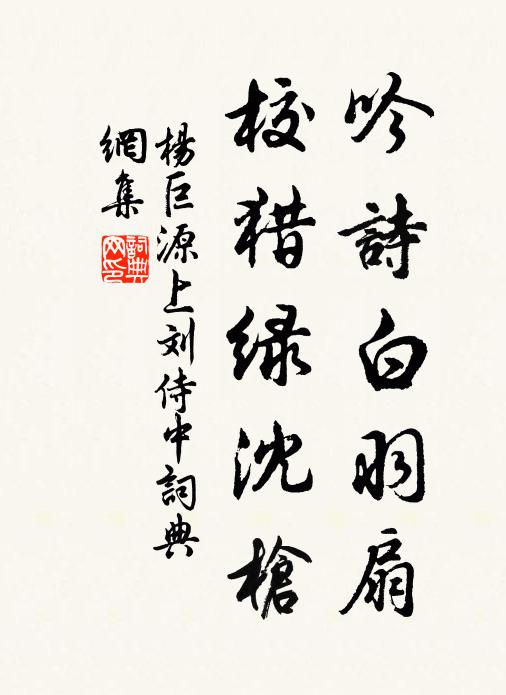 吟詩白羽扇
校猎绿沈槍
楊巨源上刘侍中詞典
網集
詞典网印